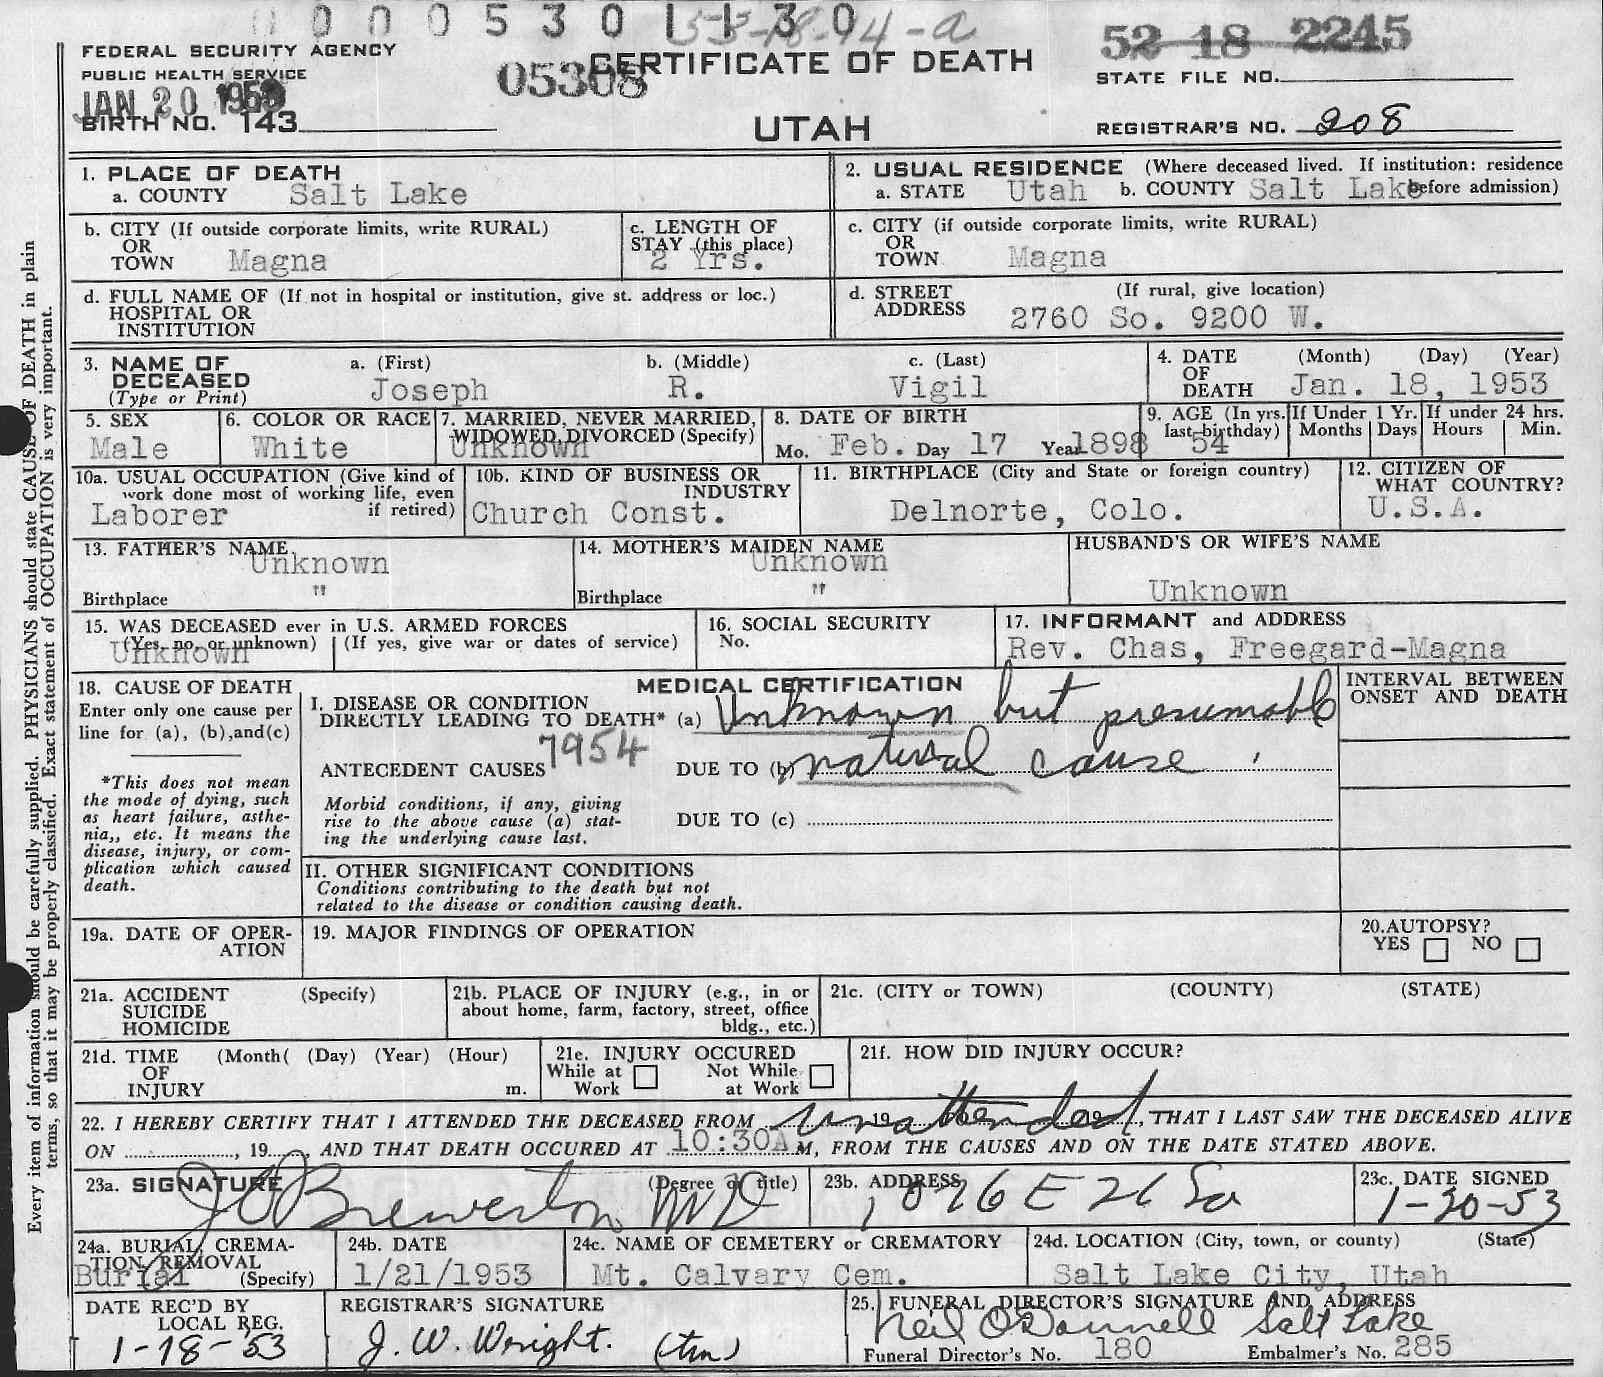 0 0 0 5 3 0 1 1 3 0
53-18-94-a
52 18 2245
FEDERAL SECURITY AGENCY
PUBLIC HEALTH SERVICE
JAN 20 1953
BIRTH NO. 143
05308
CERTIFICATE OF DEATH
UTAH
STATE FILE NO.
REGISTRAR'S NO. 208
Every item of information should be carefully supplied. PHYSICIANS should state CAUSE OF DEATH in plain
terms, so that it may be properly classified. Exact statement of OCCUPATION is very important.
1. PLACE OF DEATH
a. COUNTY Salt Lake
2. USUAL RESIDENCE (Where deceased lived. If institution: residence
a. STATE Utah b. COUNTY Salt Lake before admission)
b. CITY (If outside corporate limits, write RURAL)
OR
TOWN Magna
c. LENGTH OF
STAY (this place)
2 Yrs.
c. CITY (if outside corporate limits, write RURAL)
OR
TOWN Magna
d. FULL NAME OF (If not in hospital or institution, give st. address or loc.)
HOSPITAL OR
INSTITUTION
d. STREET (If rural, give location)
ADDRESS 2760 So. 9200 W.
3. NAME OF DECEASED
(Type or Print)
a. (First) b. (Middle) c. (Last)
Joseph R. Vigil
4. DATE OF DEATH (Month) (Day) (Year)
Jan. 18, 1953
5. SEX
Male
6. COLOR OR RACE
White
7. MARRIED, NEVER MARRIED,
WIDOWED, DIVORCED (Specify)
Unknown
8. DATE OF BIRTH
Mo. Feb. Day 17 Year 1898
9. AGE (In yrs. last birthday)
54
If Under 1 Yr.
Months Days
If under 24 hrs.
Hours Min.
10a. USUAL OCCUPATION (Give kind of
work done most of working life, even
if retired)
Laborer
10b. KIND OF BUSINESS OR
INDUSTRY
Church Const.
11. BIRTHPLACE (City and State or foreign country)
Delnorte, Colo.
12. CITIZEN OF
WHAT COUNTRY?
U.S.A.
13. FATHER'S NAME
Unknown
Birthplace "
14. MOTHER'S MAIDEN NAME
Unknown
Birthplace "
HUSBAND'S OR WIFE'S NAME
Unknown
15. WAS DECEASED ever in U.S. ARMED FORCES
(Yes, no, or unknown) (If yes, give war or dates of service)
Unknown
16. SOCIAL SECURITY
No.
17. INFORMANT and ADDRESS
Rev. Chas, Freegard-Magna
18. CAUSE OF DEATH
Enter only one cause per
line for (a), (b), and (c)
*This does not mean
the mode of dying, such
as heart failure, asthe-
nia,, etc. It means the
disease, injury, or com-
plication which caused
death.
MEDICAL CERTIFICATION
I. DISEASE OR CONDITION
DIRECTLY LEADING TO DEATH* (a) Unknown but presumabl
7954
ANTECEDENT CAUSES DUE TO (b) natural cause
Morbid conditions, if any, giving
rise to the above cause (a) stat-
ing the underlying cause last.
DUE TO (c)
INTERVAL BETWEEN
ONSET AND DEATH
II. OTHER SIGNIFICANT CONDITIONS
Conditions contributing to the death but not
related to the disease or condition causing death.
19a. DATE OF OPER-
ATION
19. MAJOR FINDINGS OF OPERATION
20. AUTOPSY?
YES NO
21a. ACCIDENT (Specify)
SUICIDE
HOMICIDE
21b. PLACE OF INJURY (e.g., in or
about home, farm, factory, street, office
bldg., etc.)
21c. (CITY or TOWN) (COUNTY) (STATE)
21d. TIME (Month( (Day) (Year) (Hour)
OF
INJURY m.
21e. INJURY OCCURED
While at Work Not While at Work
21f. HOW DID INJURY OCCUR?
22. I HEREBY CERTIFY THAT I ATTENDED THE DECEASED FROM unattended, THAT I LAST SAW THE DECEASED ALIVE
ON , 19 , AND THAT DEATH OCCURED AT 10:30A M, FROM THE CAUSES AND ON THE DATE STATED ABOVE.
23a. SIGNATURE (Degree or title)
J C Brewerton MD
23b. ADDRESS
1076 E 21 So
23c. DATE SIGNED
1-20-53
24a. BURIAL, CREMA-
TION, REMOVAL
(Specify)
Burial
24b. DATE
1/21/1953
24c. NAME OF CEMETERY or CREMATORY
Mt. Calvary Cem.
24d. LOCATION (City, town, or county) (State)
Salt Lake City, Utah
DATE REC'D BY
LOCAL REG.
1-18-53
REGISTRAR'S SIGNATURE
J. W. Wright. (tm)
25. FUNERAL DIRECTOR'S SIGNATURE AND ADDRESS
Neil O'Donnell Salt Lake
Funeral Director's No. 180 Embalmer's No. 285